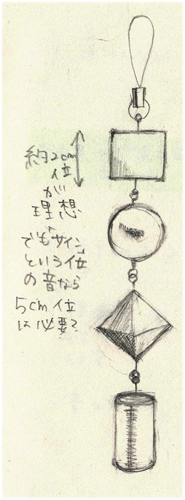 約2cm
位
が
理想
でも「サイン」
という位
の音なら
5cm位
は必要?